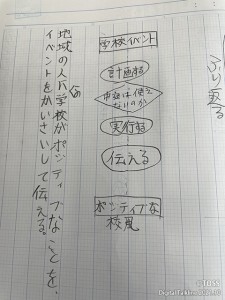 学校イベント
計画する
実行する
伝える
ポジティブな
校風
地域の人が学校がポジティブなことを、
イベントをかいさいして伝える。
ふり返る
class